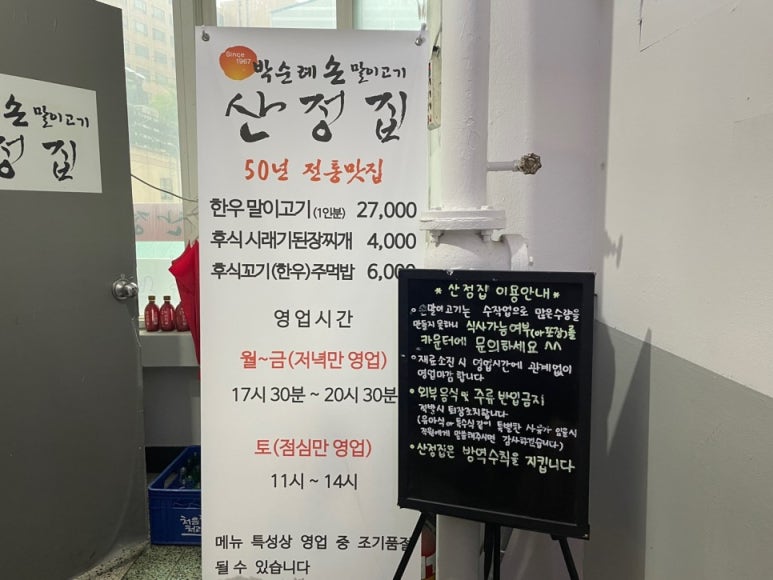 손 말이고기
정 집
Since
1967
박순례 손 말이고기
산 정 집
50년 전통맛집
한우 말이고기 (1인분) 27,000
후식 시래기된장찌개 4,000
후식꼬기(한우)주먹밥 6,000
영업시간
월~금(저녁만 영업)
17시 30분 ~ 20시 30분
토(점심만 영업)
11시 ~ 14시
메뉴 특성상 영업 중 조기품절
될 수 있습니다
* 산정집 이용안내 *
손말이고기는 수작업으로 많은수량을
만들지 못하니 식사가능여부(or포장)를
카운터에 문의하세요 ^^
재료소진 시 영업시간에 관계없이
영업마감 합니다
외부음식 및 주류 반입금지
적발시 퇴장조치합니다
(유아식 or 특수식같이 특별한 사유가 있을시
직원에게 말씀해주시면 감사하겠습니다)
산정집은 방역수칙을 지킵니다
처음